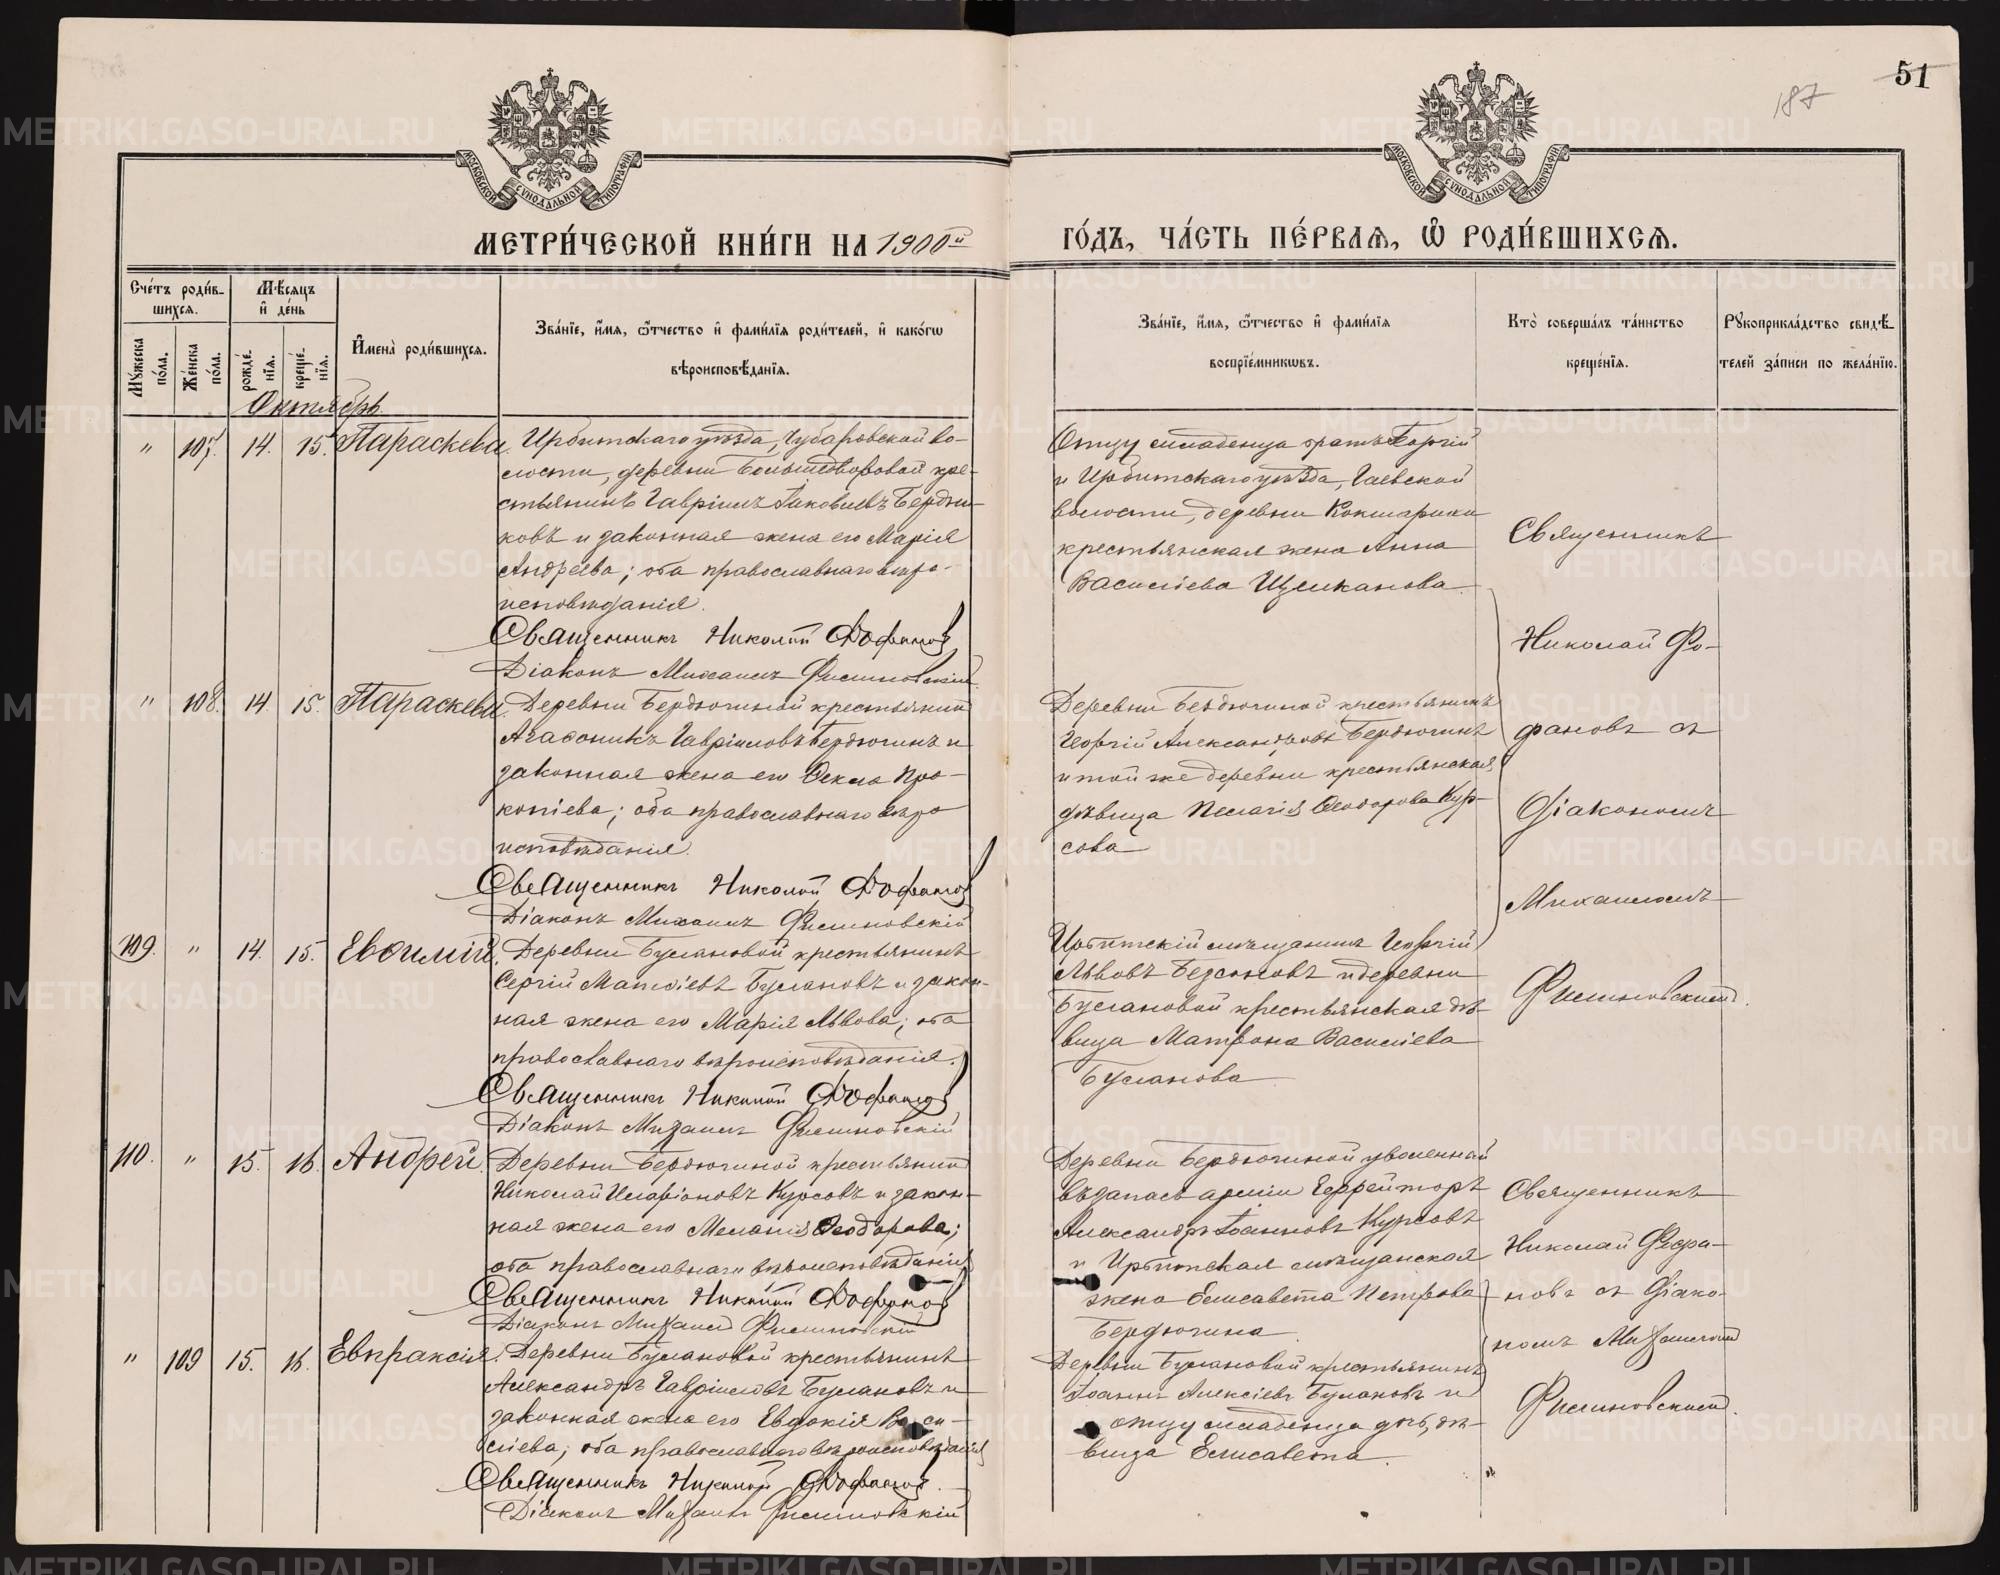 51
187
МОСКОВСКОЙ СѴНОДАЛЬНОЙ ТИПОГРАФІИ
МОСКОВСКОЙ СѴНОДАЛЬНОЙ ТИПОГРАФІИ
МЕТРИ́ЧЕСКОЙ КНИ́ГИ НА 1900й
ГО́ДЪ, ЧА́СТЬ ПЕ́РВАѦ, Ѽ РОДИ́ВШИХСѦ.
Сче́тъ роди́в-
шихсѧ.
Мѣ́сѧцъ
и҆ де́нь
Мꙋ́жеска по́ла.
Же́нска по́ла.
рожде́-
нїѧ.
креще́-
нїѧ.
И҆мена̀ роди́вшихсѧ.
Зва́нїе, и҆́мѧ, ѻ҆́тчество и҆ фамі́лїѧ роди́телей, и҆ како́гѡ
вѣроисповѣ́данїѧ.
Зва́нїе, и҆́мѧ, ѻ҆́тчество и҆ фамі́лїѧ
воспрїе́мникѡвъ.
Кто̀ соверша́лъ та́инство
креще́нїѧ.
Рꙋкоприкла́дство свидѣ́-
телей за́писи по жела́нїю.
Октябрь
" 107. 14. 15. Параскева.
Ирбитскаго уѣзда, Чубаровской во-
лости, деревни Большедворовой кре-
стьянинъ Гавріилъ Іаковлевъ Бердни-
ковъ и законная жена его Марія
Андреева; оба православнаго вѣро-
исповѣданія.
Священникъ Николай Фофановъ
Діаконъ Михаилъ Филиновскій
Отцу младенца братъ Георгій
и Ирбитскаго уѣзда, Гаевской
волости, деревни Кокшарихи
крестьянская жена Анна
Василіева Щелканова.
Священникъ
Николай Фо-
фановъ съ
діакономъ
Михаиломъ
Филиновскимъ.
" 108. 14. 15. Параскева.
Деревни Бердюгиной крестьянинъ
Агафоникъ Гавріиловъ Бердюгинъ и
законная жена его Ѳекла Про-
копіева; оба православнаго вѣро
исповѣданія.
Священникъ Николай Фофановъ
Діаконъ Михаилъ Филиновскій
Деревни Бердюгиной крестьянинъ
Георгій Александровъ Бердюгинъ
и той же деревни крестьянская
дѣвица Пелагія Ѳеодорова Кур-
сова
109. " 14. 15. Евѳимій.
Деревни Булановой крестьянинъ
Сергій Матѳіевъ Булановъ и закон-
ная жена его Марія Львова; оба
православнаго вѣроисповѣданія.
Священникъ Николай Фофановъ
Діаконъ Михаилъ Филиновскій
Ирбитскій мѣщанинъ Георгій
Львовъ Безсоновъ и деревни
Булановой крестьянская дѣ-
вица Матрона Василіева
Буланова
110. " 15. 16. Андрей.
Деревни Бердюгиной крестьянинъ
Николай Иларіоновъ Курсовъ и закон-
ная жена его Меланія Ѳеодорова;
оба православнаго вѣроисповѣданія
Священникъ Николай Фофановъ
Діаконъ Михаилъ Филиновскій
Деревни Бердюгиной уволенный
въ запасъ арміи Ефрейторъ
Александръ Іоанновъ Курсовъ
и Ирбитская мѣщанская
жена Елисавета Петрова
Бердюгина.
Священникъ
Николай Фофа-
новъ съ діако-
номъ Михаиломъ
Филиновскимъ.
" 109 15. 16. Евпраксія.
Деревни Булановой крестьянинъ
Александръ Гавріиловъ Булановъ и
законная жена его Евдокія Васи-
ліева; оба православнаго вѣроисповѣданія
Священникъ Николай Фофановъ.
Діаконъ Михаилъ Филиновскій
Деревни Булановой крестьянинъ
Іоаннъ Алексіевъ Булановъ и
отцу младенца дочь, дѣ-
вица Елисавета.
METRIKI.GASO-URAL.RU